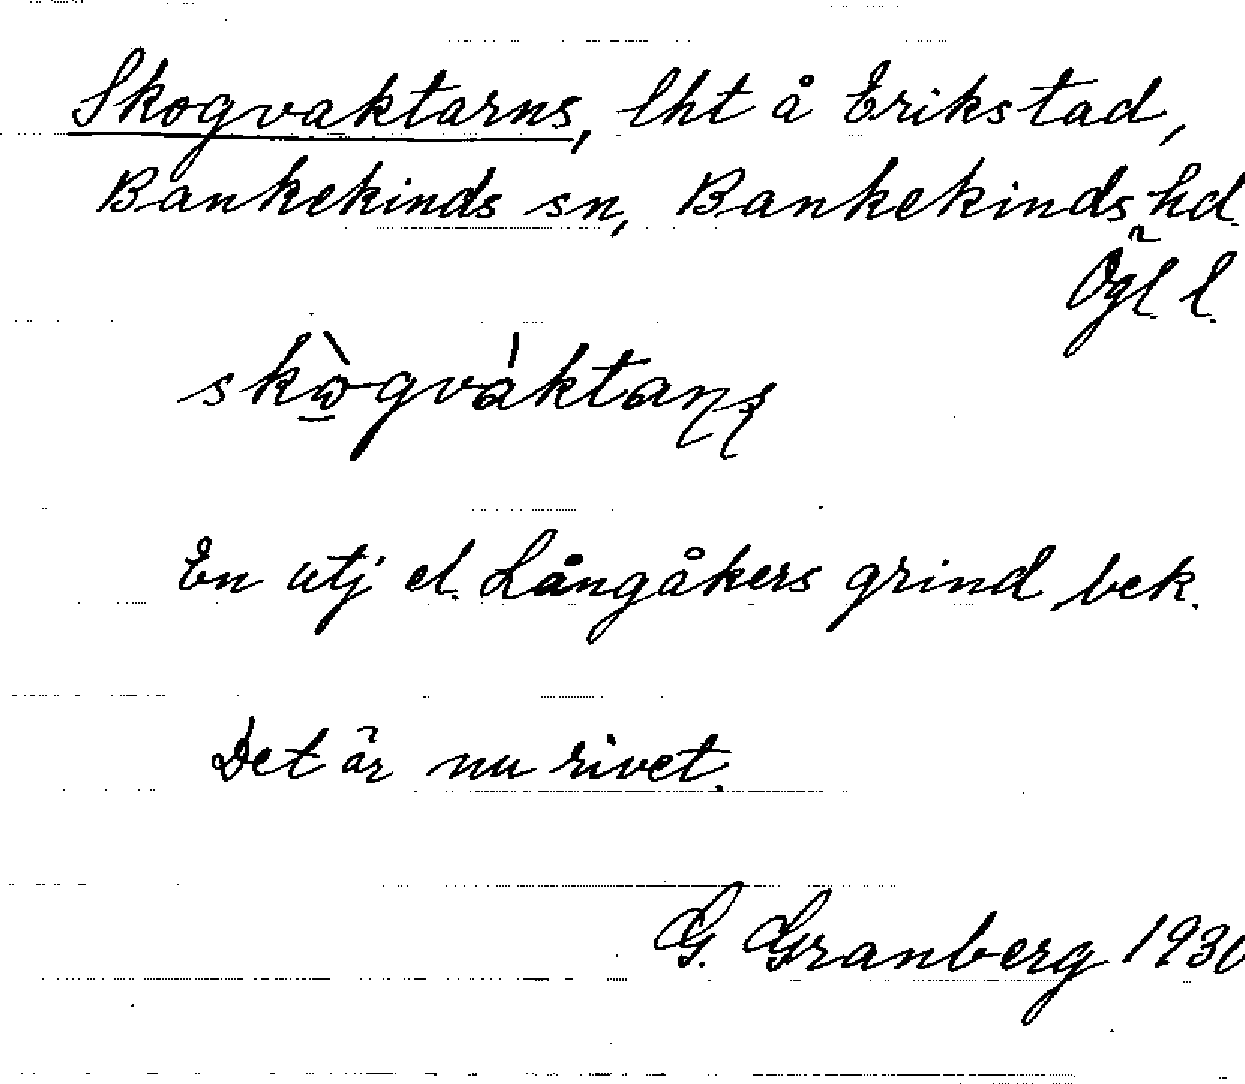 Skogvaktarns, lht å Erikstad,
Bankekinds sn, Bankekinds hd.
Ögl. l.
En utj el. Långåkers grind bek.
Det är nu rivet.
G. Granberg